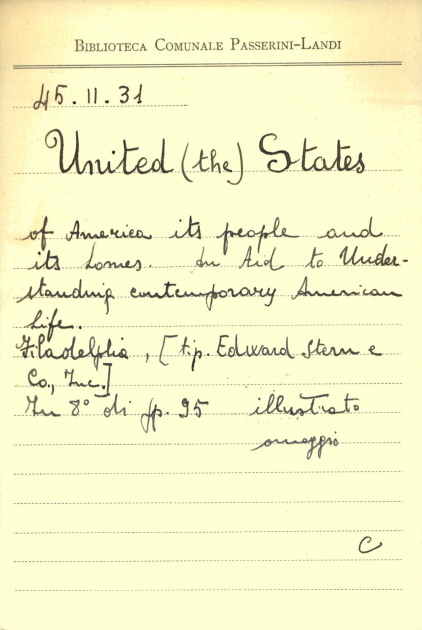 BIBLIOTECA COMUNALE PASSERINI-LANDI
45.II.31
United (the) States
of America its people and
its homes. An Aid to Under-
standing contemporary American
Life.
Filadelfia, [tip. Edward Stern e
Co., Inc.]
In 8° di pp. 95 illustrato
omaggio
C